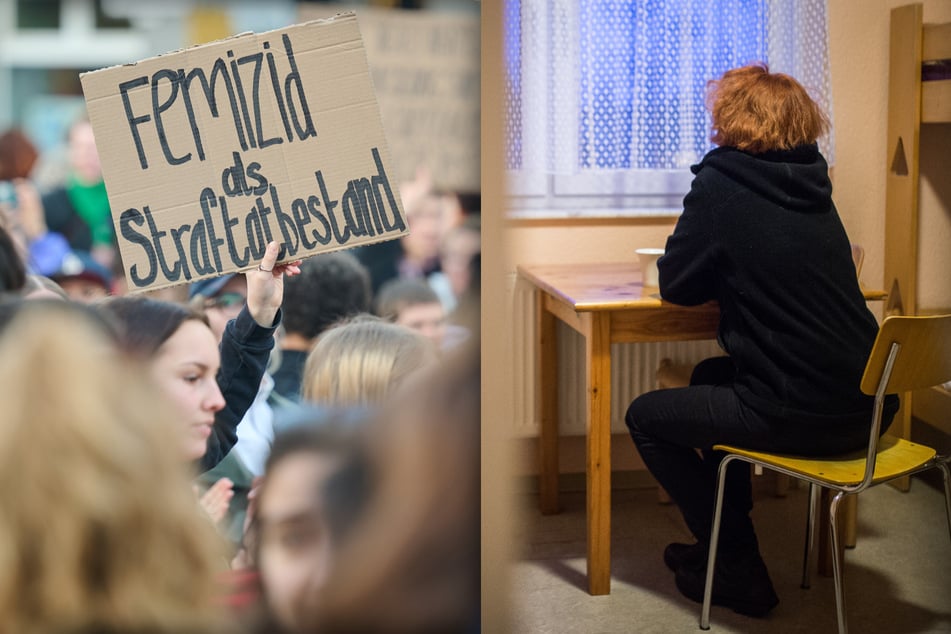 Femizid
als
Straftatbestand